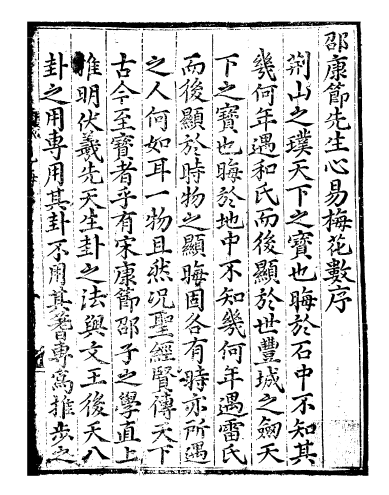 邵康節先生心易梅花數序
荆山之璞天下之寶也晦於石中不知其
幾何年遇和氏而後顯於世豐城之劍天
下之寶也晦於地中不知幾何年遇雷氏
而後顯於時物之顯晦固各有時亦所遇
之人何如耳一物且然况聖經賢傳天下
古今至寶者乎有宋康節邵子之學直上
推明伏羲先天生卦之法與文王後天八
卦之用專用其卦不用其蓍專爲推步之